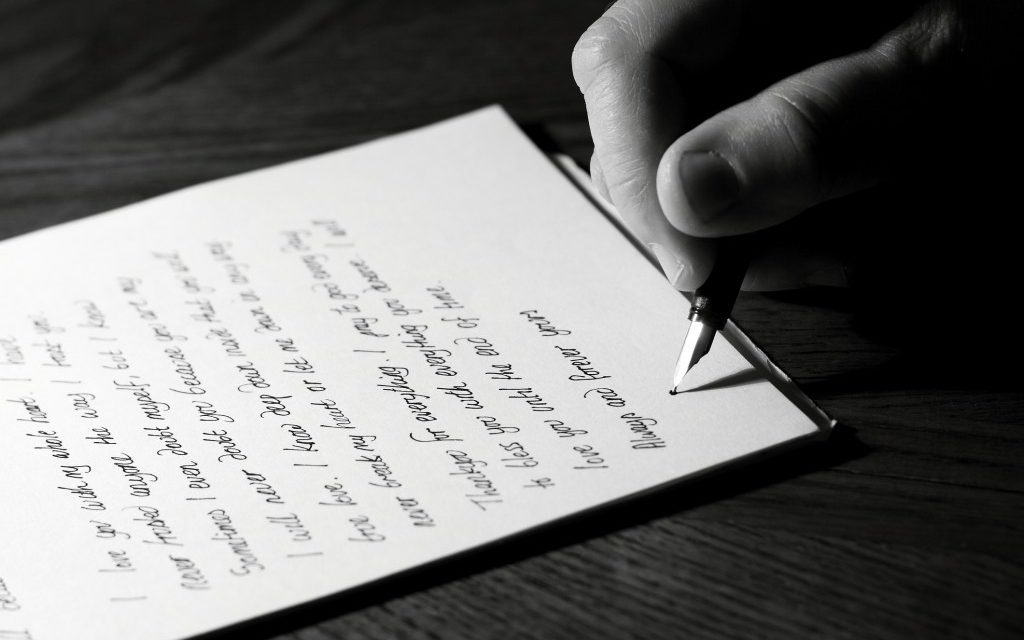 I love you with my whole heart. I have
never trusted anyone the way I trust you.
Sometimes I even doubt myself, but I know
I will never doubt you because you are my
true love. I know deep down inside that you will
never break my heart or let me down in any way.
Thankyou for everything. I pray to god every day
to bless you with everything you desire. I will
love you until the end of time.
Always and forever yours